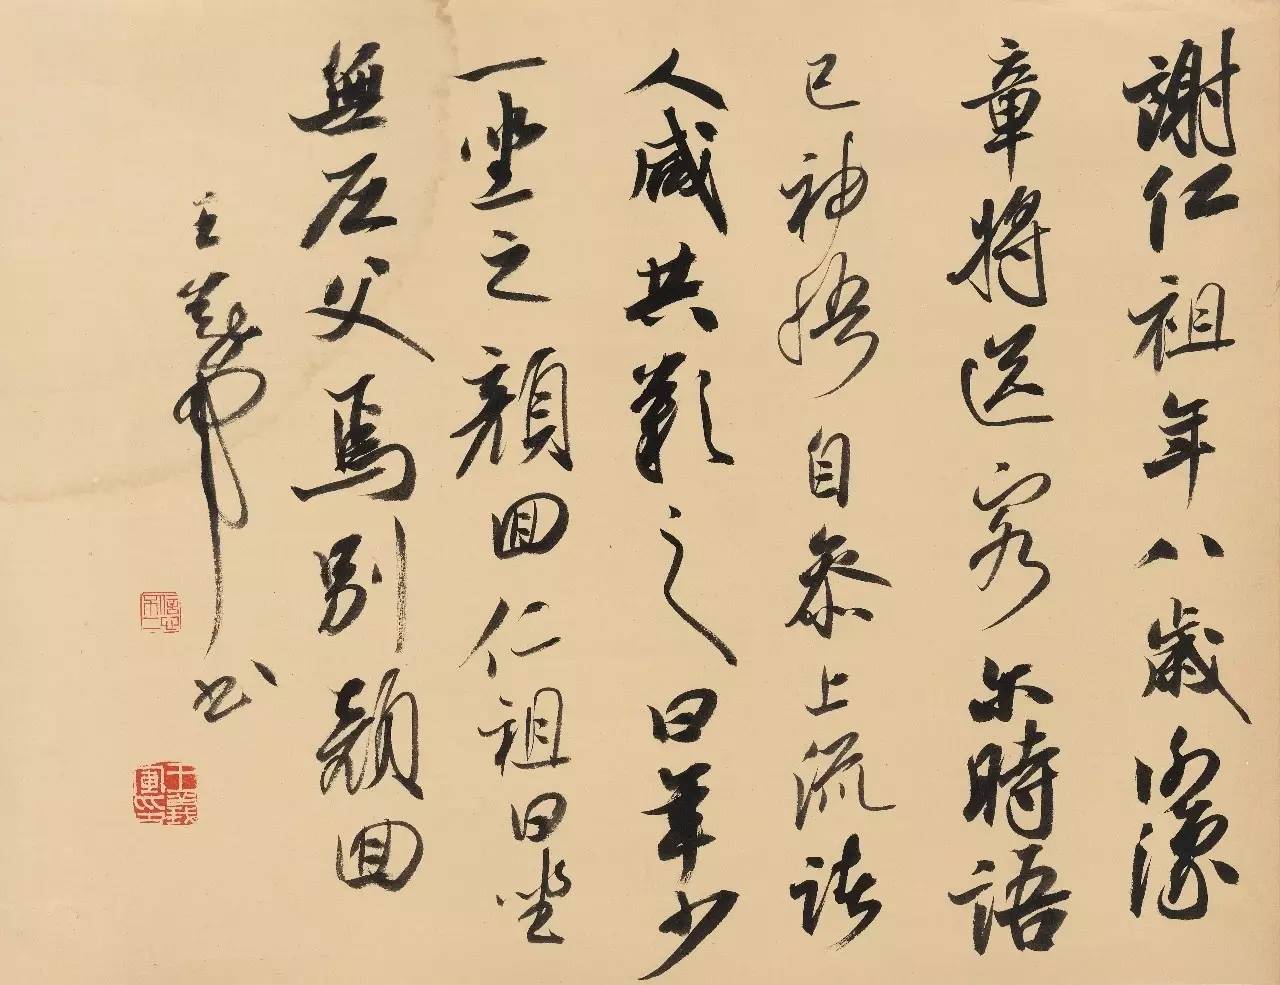 謝仁祖年八歲謝豫
章將送客尔時語
已神悟自叅上流諸
人咸共歎之曰年少
一坐之顏囬仁祖曰坐
無尼父焉別顏囬
王義軍書
王義軍印